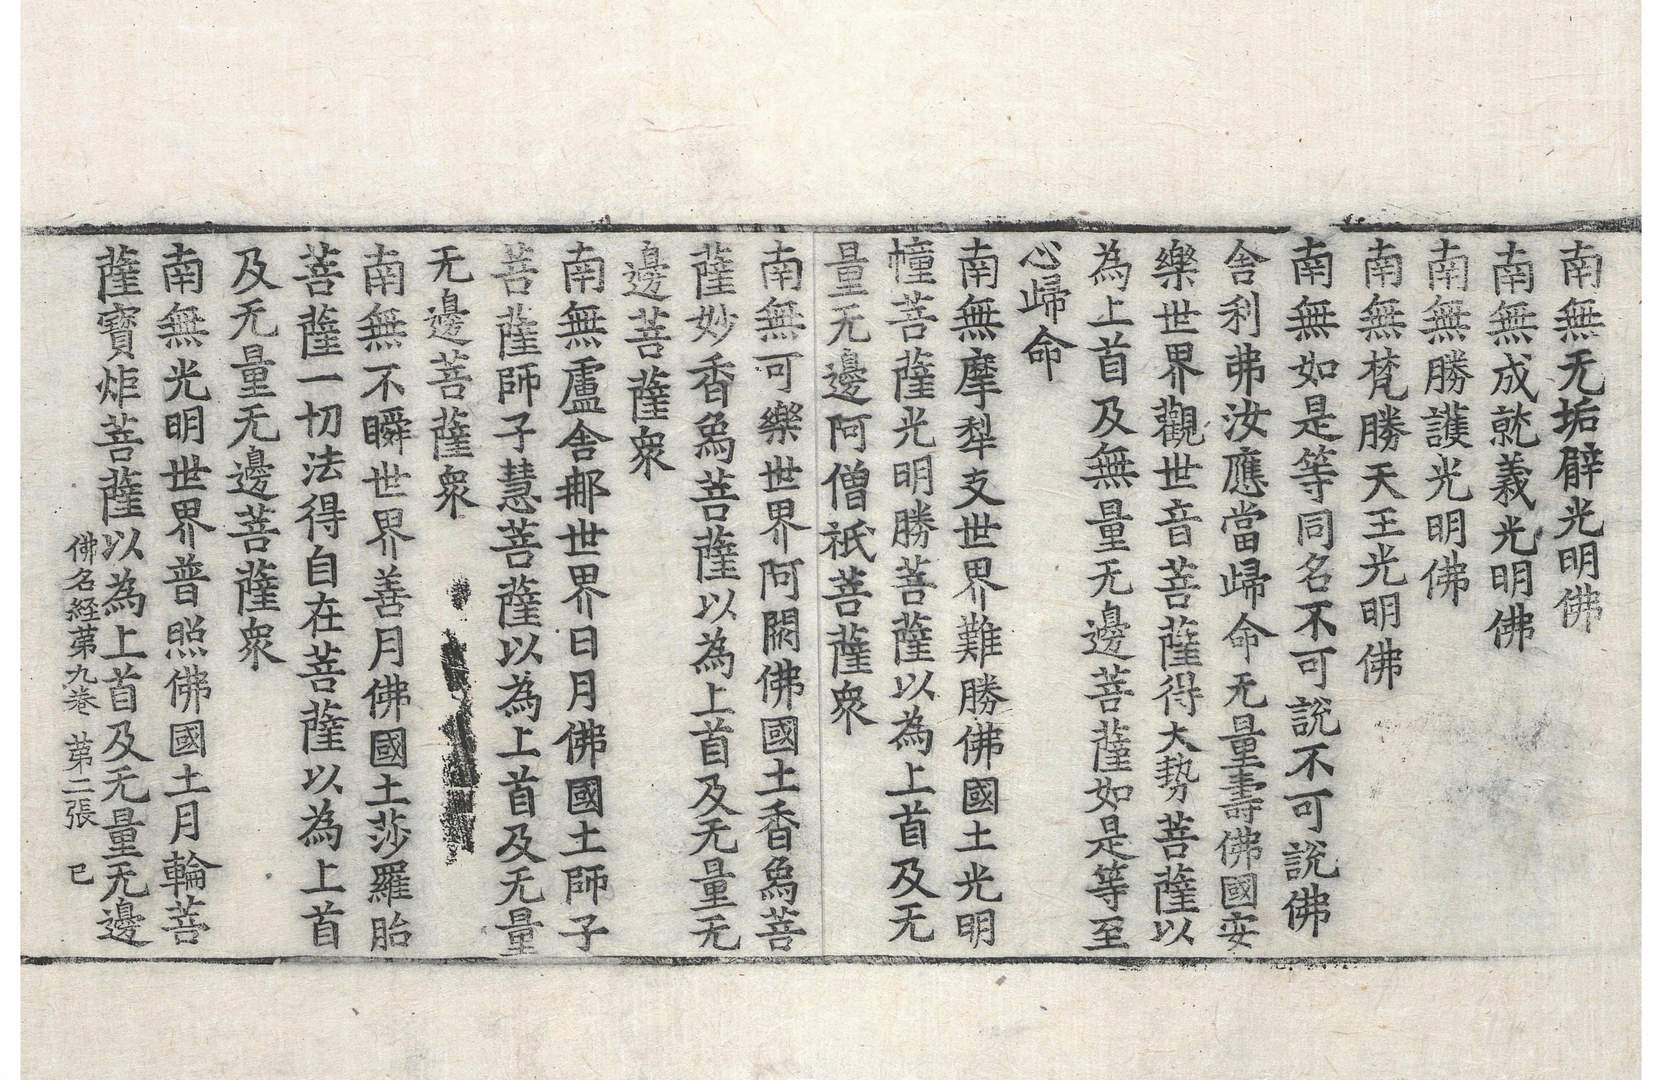 南無无垢臂光明佛
南無成就義光明佛
南無勝護光明佛
南無梵勝天王光明佛
南無如是等同名不可說不可說佛
舍利弗汝應當歸命无量壽佛國安
樂世界觀世音菩薩得大勢菩薩以
為上首及無量无邊菩薩如是等至
心歸命
南無摩犁支世界難勝佛國土光明
幢菩薩光明勝菩薩以為上首及无
量无邊阿僧祇菩薩衆
南無可樂世界阿閦佛國土香象菩
薩妙香象菩薩以為上首及无量无
邊菩薩衆
南無盧舍那世界日月佛國土師子
菩薩師子慧菩薩以為上首及无量
无邊菩薩衆
南無不瞬世界善月佛國土莎羅胎
菩薩一切法得自在菩薩以為上首
及无量无邊菩薩衆
南無光明世界普照佛國土月輪菩
薩寶炬菩薩以為上首及无量无邊
佛名経苐九卷 苐二張 已